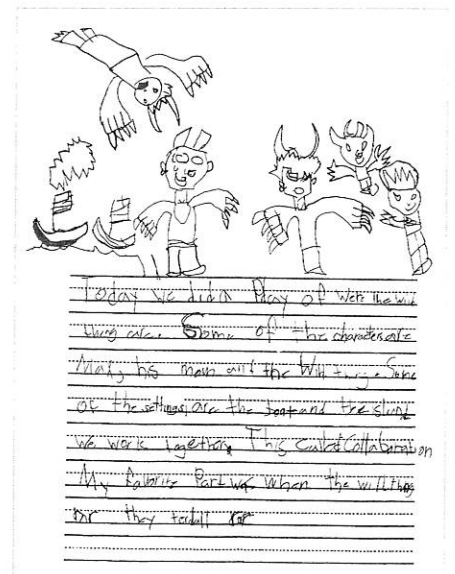 Today we did a Play of Were the Wild
thing are. Some of the characters are
Max, his mom and the Will things Some
of the settings, are the boat and the
We work together, This called Collaboration
My favorite Part was when the will things
they